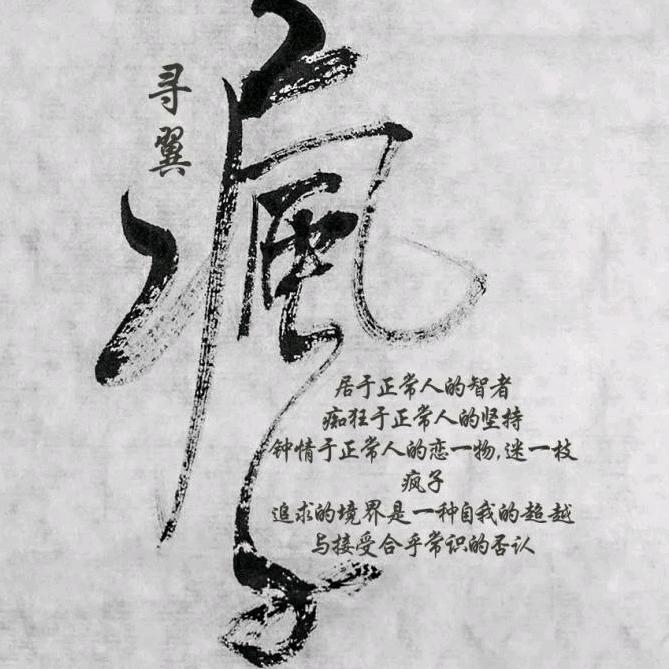 寻翼
瘋子
居于正常人的智者
痴狂于正常人的坚持
钟情于正常人的恋一物,迷一枝
疯子
追求的境界是一种自我的超越
与接受合乎常识的否认